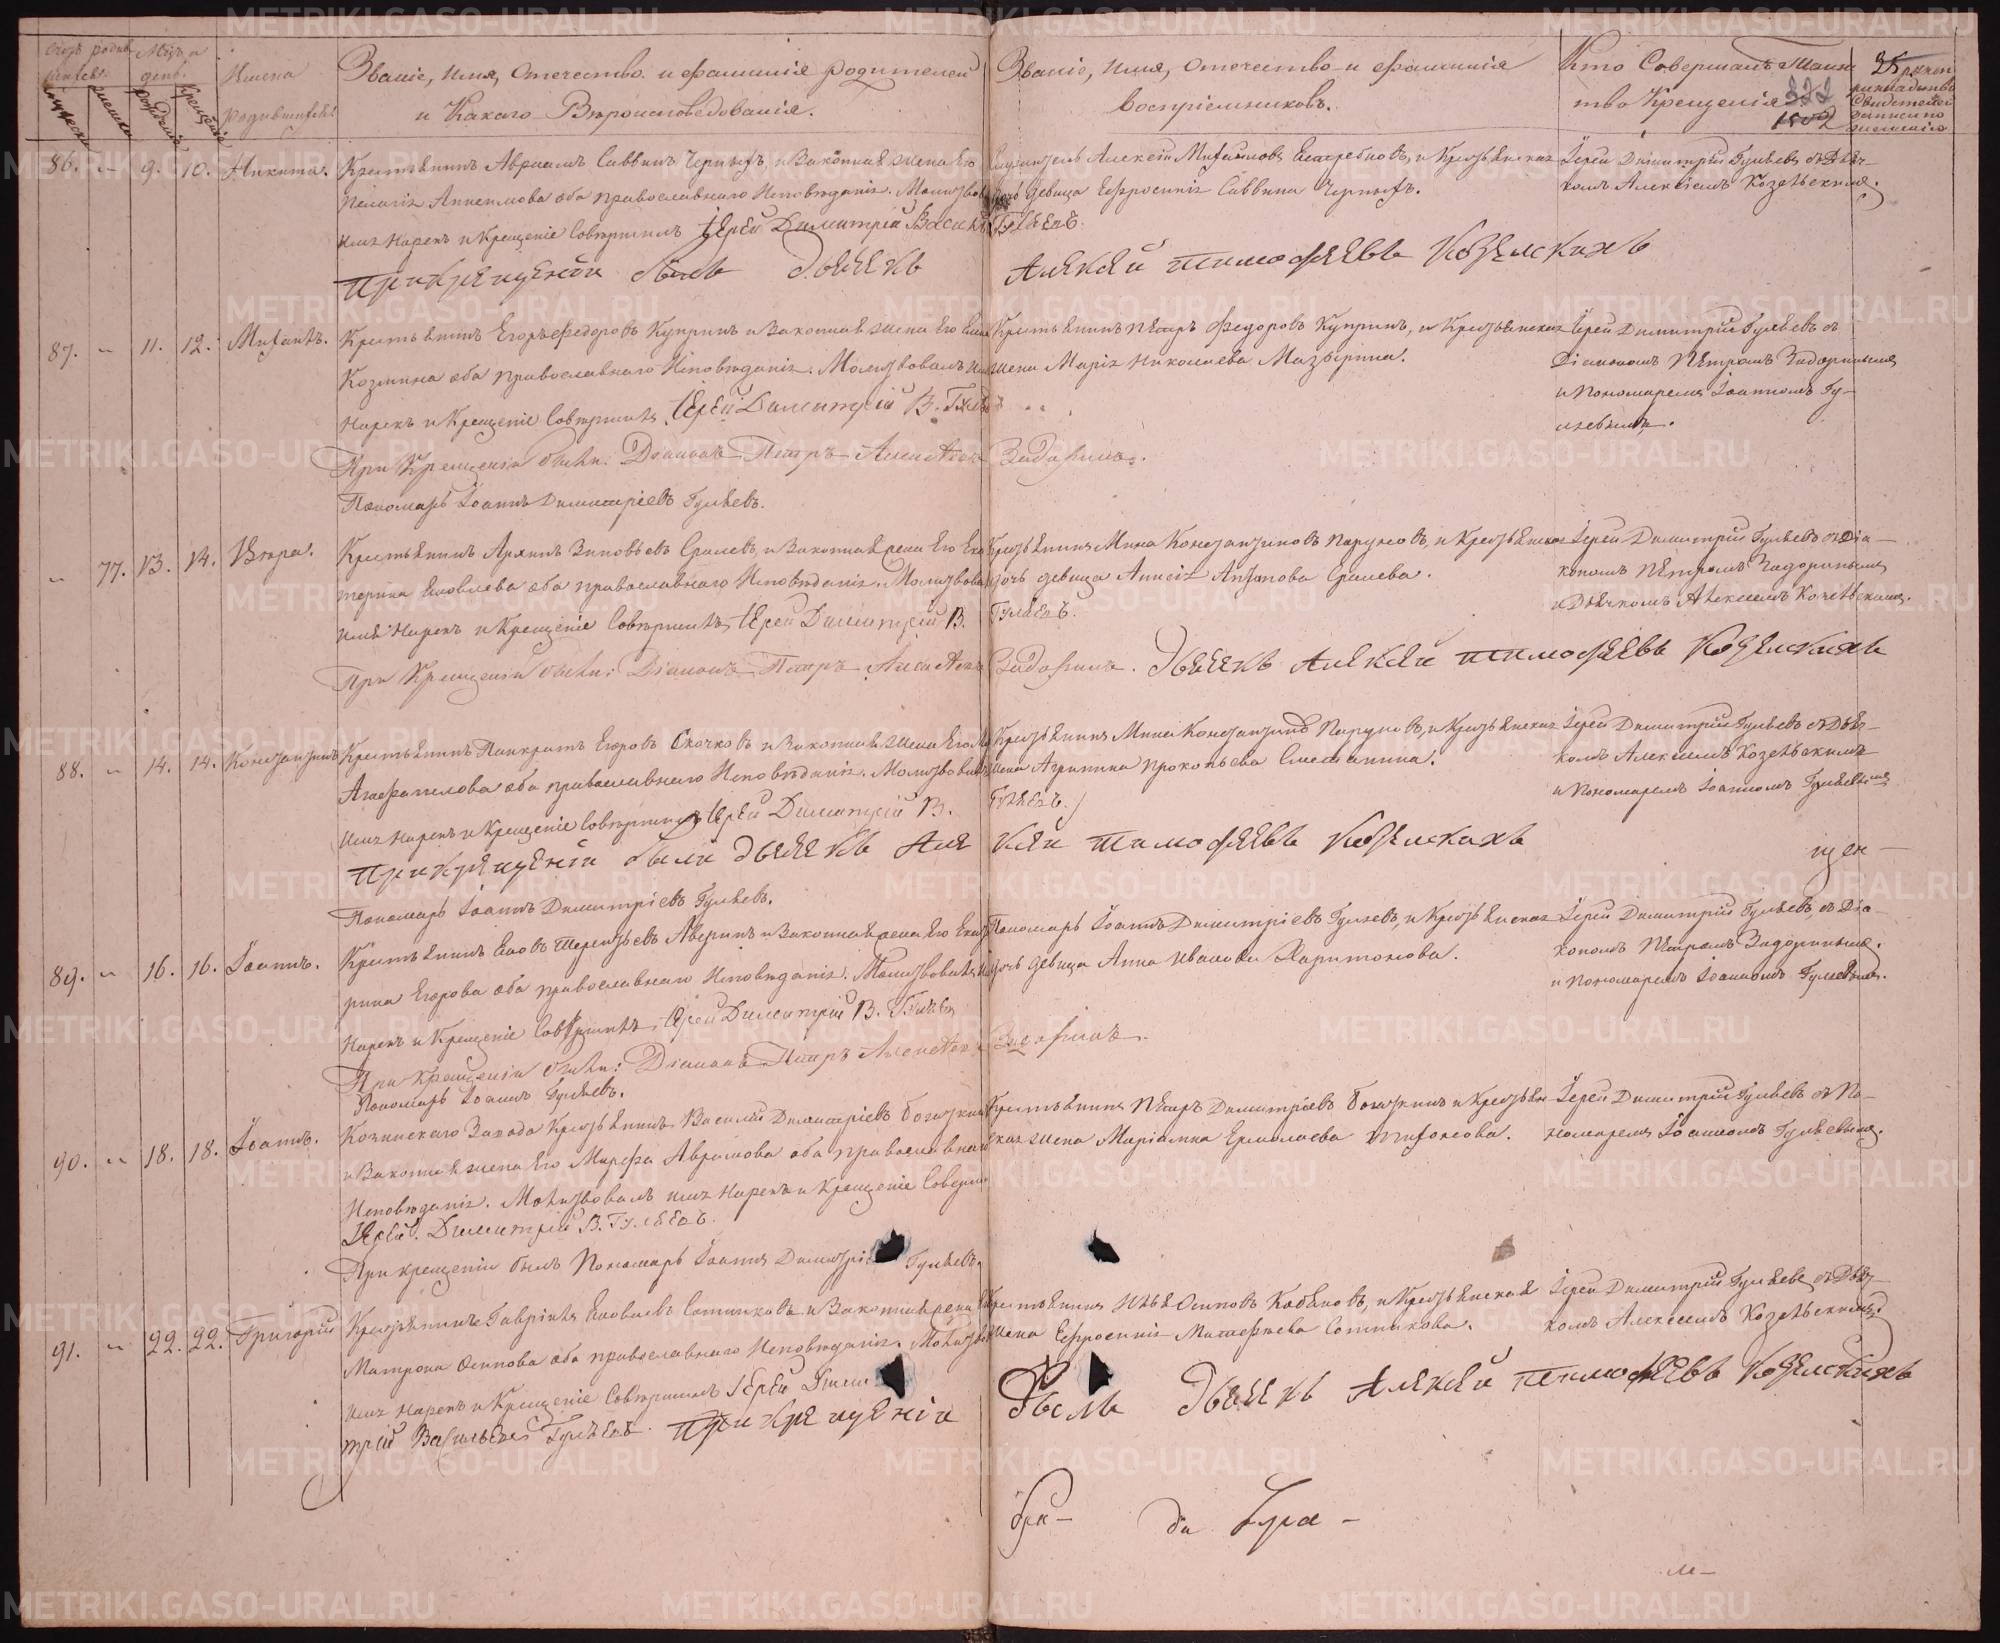 Счетъ родив-
шихся.
мужеска
женска
Мѣс. и
день.
рожденія
крещенія
Имена
родившихся
Званіе, имя, отечество и фамилія родителей
и какого вѣроисповѣданія.
Званіе, имя, отечество и фамилія
воспріемниковъ.
Кто совершалъ таин-
ство крещенія
322
25
86. - 9. 10. Никита.
Крестьянинъ Авраамъ Саввинъ Черныхъ, и законная жена его
Пелагія Анисимова оба православнаго исповѣданія. Молитвовалъ
имя нарекъ и крещеніе совершилъ Іерей Димитрій Василь
Гуляевъ.
При крещеніи былъ дьячекъ
Алексей Тимофеевъ Козелскихъ
Алексій Михайловъ Ястребковъ, и крестьянская
дочь девица Ефросинія Саввина Черныхъ.
Іерей Димитрій Гуляевъ съ дьяч-
комъ Алексіемъ Козельскимъ.
87. - 11. 12. Михаилъ.
Крестьянинъ Егоръ Федоровъ Купринъ и законная жена его
Козмина оба православнаго исповѣданія. Молитвовалъ имя
нарекъ и крещеніе совершилъ Іерей Димитрій В. Гуляевъ
При крещеніи были: Діаконъ Петръ Алексѣевъ
Задоринъ.
Пономарь Іоаннъ Димитріевъ Гуляевъ.
Крестьянинъ Петръ Федоровъ Купринъ, и крестьянская
жена Марія Николаева Мазурина.
Іерей Димитрій Гуляевъ съ
Діакономъ Петромъ Задоринымъ
и Пономаремъ Іоанномъ Гу-
ляевымъ.
- 77. 13. 14. Вѣра.
Крестьянинъ Архипъ Зиновьевъ Сралевъ, и законная жена его Ека
терина Яковлева оба православнаго исповѣданія. Молитвовалъ
имя нарекъ и крещеніе совершилъ Іерей Димитрій В.
Гуляевъ.
При крещеніи были: Діаконъ Петръ Алексѣевъ
Задоринъ. Дьячекъ Алексей Тимофеевъ Козелскихъ
Крестьянинъ Мина Константиновъ Паруновъ, и крестьянская
дочь девица Анисія Архипова Сралева.
Іерей Димитрій Гуляевъ съ Діа-
кономъ Петромъ Задоринымъ
и Дьячкомъ Алексіемъ Козельскимъ.
88. - 14. 14. Константинъ
Крестьянинъ Панкратъ Егоровъ Скачковъ и законная жена его
Агафангелова оба православнаго исповѣданія. Молитвовалъ
имя нарекъ и крещеніе совершилъ Іерей Димитрій В.
Гуляевъ.
При крещеніи были дьячекъ Але
ксей Тимофеевъ Козелскихъ
Пономарь Іоаннъ Димитріевъ Гуляевъ.
Крестьянинъ Мина Константиновъ Паруновъ, и крестьянская
жена Агрипина Прокопьева Сметанина.
Іерей Димитрій Гуляевъ съ дьяч-
комъ Алексіемъ Козельскимъ
и Пономаремъ Іоанномъ Гуляевымъ
щен-
89. - 16. 16. Іоаннъ.
Крестьянинъ Яковъ Терентьевъ Аверинъ и законная жена его Екате
рина Егорова оба православнаго исповѣданія. Молитвовалъ имя
нарекъ и крещеніе совершилъ Іерей Димитрій В. Гуляевъ
При крещеніи были: Діаконъ Петръ Алексѣевъ
Задоринъ.
Пономарь Іоаннъ Гуляевъ.
Пономарь Іоаннъ Димитріевъ Гуляевъ, и крестьянская
дочь девица Анна Иванова Харитонова.
Іерей Димитрій Гуляевъ съ Діа-
кономъ Петромъ Задоринымъ.
и Пономаремъ Іоанномъ Гуляевымъ.
90. - 18. 18. Іоаннъ.
завода крестьянинъ Василій Димитріевъ Богаткинъ
и законная жена его Марфа Аврамова оба православнаго
исповѣданія. Молитвовалъ имя нарекъ и крещеніе соверши
Іерей Димитрій В. Гуляевъ.
При крещеніи былъ Пономарь Іоаннъ Димитріевъ Гуляевъ.
Крестьянинъ Петръ Димитріевъ Богаткинъ и крестьян
ская жена Маріамна Ермолаева Тифонова.
Іерей Димитрій Гуляевъ съ По-
номаремъ Іоанномъ Гуляевымъ.
91. - 22. 22. Григорій
Крестьянинъ Гавріилъ Яковлевъ Сотниковъ и законная жена
Матрона Осипова оба православнаго исповѣданія. Молитвов
имя нарекъ и крещеніе совершилъ Іерей Дими
трій Васильевъ Гуляевъ. При крещеніи
былъ дьячекъ Алексей Тимофеевъ Козелскихъ
Крестьянинъ Илья Осиповъ Кабановъ, и крестьянская
жена Ефросинія Матфеева Сотникова.
Іерей Димитрій Гуляевъ съ дьяч-
комъ Алексіемъ Козельскимъ.
METRIKI.GASO-URAL.RU